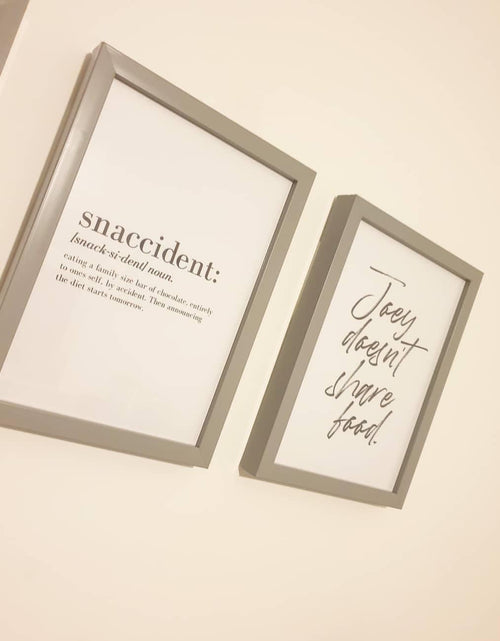 snaccident:
[snack-si-dent] noun.
eating a family size bar of chocolate, entirely
to ones self, by accident. Then announcing
the diet starts tomorrow.
Joey
doesn't
share
food.